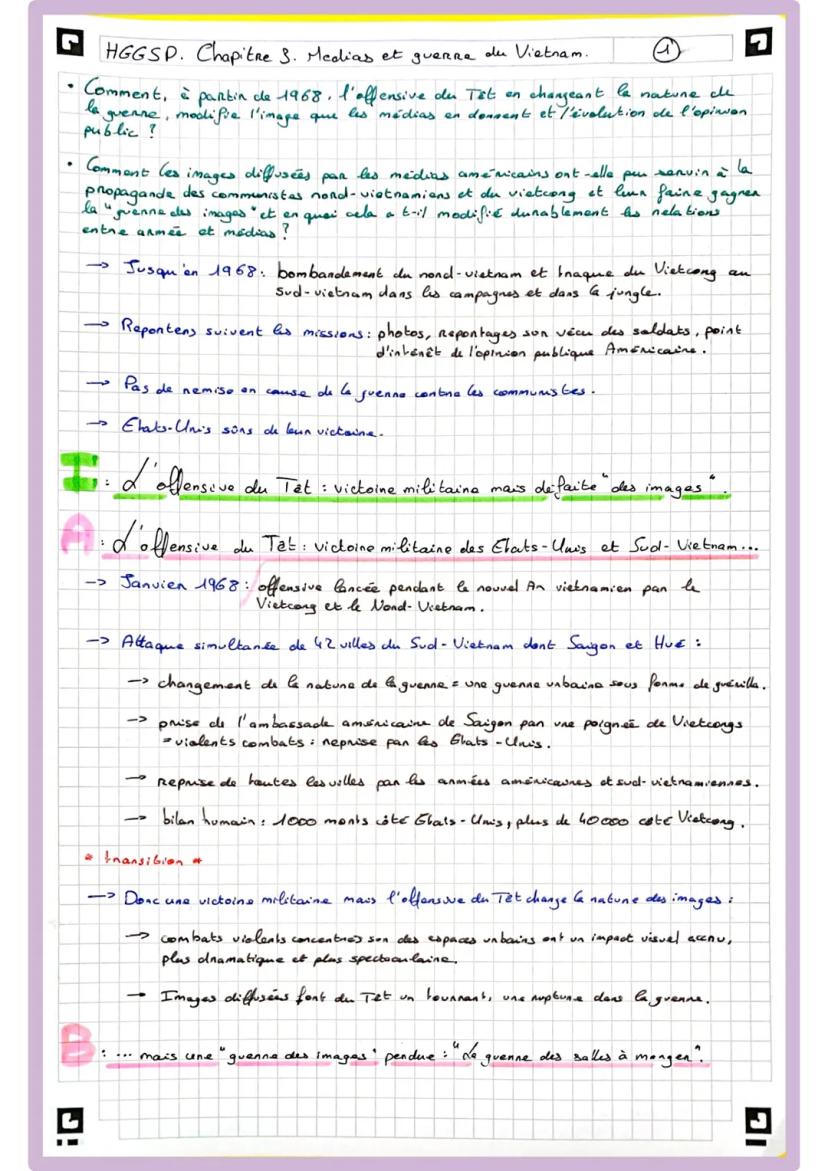 HGGSP. Chapitre 3. Medias et guerre du Vietnam.
1
• Comment, à partir de 1968, l'offensive du Têt en changeant la nature de
la guerre, modifie l'image que les médias en donnent et l'évolution de l'opinion
public ?
• Comment les images diffusées par les médias américains ont-elle pu servir à la
propagande des communistes nord-vietnamiens et du vietcong et leur faire gagner
la "guerre des images" et en quoi cela a t-il modifié durablement les relations
entre armée et médias ?
→ Jusqu'en 1968 : bombardement du nord-vietnam et traque du Vietcong au
sud-vietnam dans les campagnes et dans la jungle.
→ Reporters suivent les missions : photos, reportages sur vécu des soldats, point
d'intérêt de l'opinion publique Américaine.
→ Pas de remise en cause de la guerre contre les communistes.
→ Etats-Unis sûrs de leur victoire.
I : L'offensive du Têt : victoire militaire mais défaite "des images".
A : L'offensive du Têt : victoire militaire des Etats-Unis et Sud-Vietnam...
→ Janvier 1968 : offensive lancée pendant le nouvel An vietnamien par le
Vietcong et le Nord-Vietnam.
→ Attaque simultanée de 42 villes du Sud-Vietnam dont Saigon et Hué :
→ changement de la nature de la guerre = une guerre urbaine sous forme de guérilla.
→ prise de l'ambassade américaine de Saigon par une poignée de Vietcongs
= violents combats : reprise par les Etats-Unis.
→ reprise de toutes les villes par les armées américaines et sud-vietnamiennes.
→ bilan humain : 1000 morts côté Etats-Unis, plus de 40 000 côté Vietcong.
* transition *
→ Donc une victoire militaire mais l'offensive du Têt change la nature des images :
→ combats violents concentrés sur des espaces urbains ont un impact visuel accru,
plus dramatique et plus spectaculaire.
→ Images diffusées font du Têt un tournant, une rupture dans la guerre.
B : ... mais une "guerre des images" perdue : "La guerre des salles à manger".